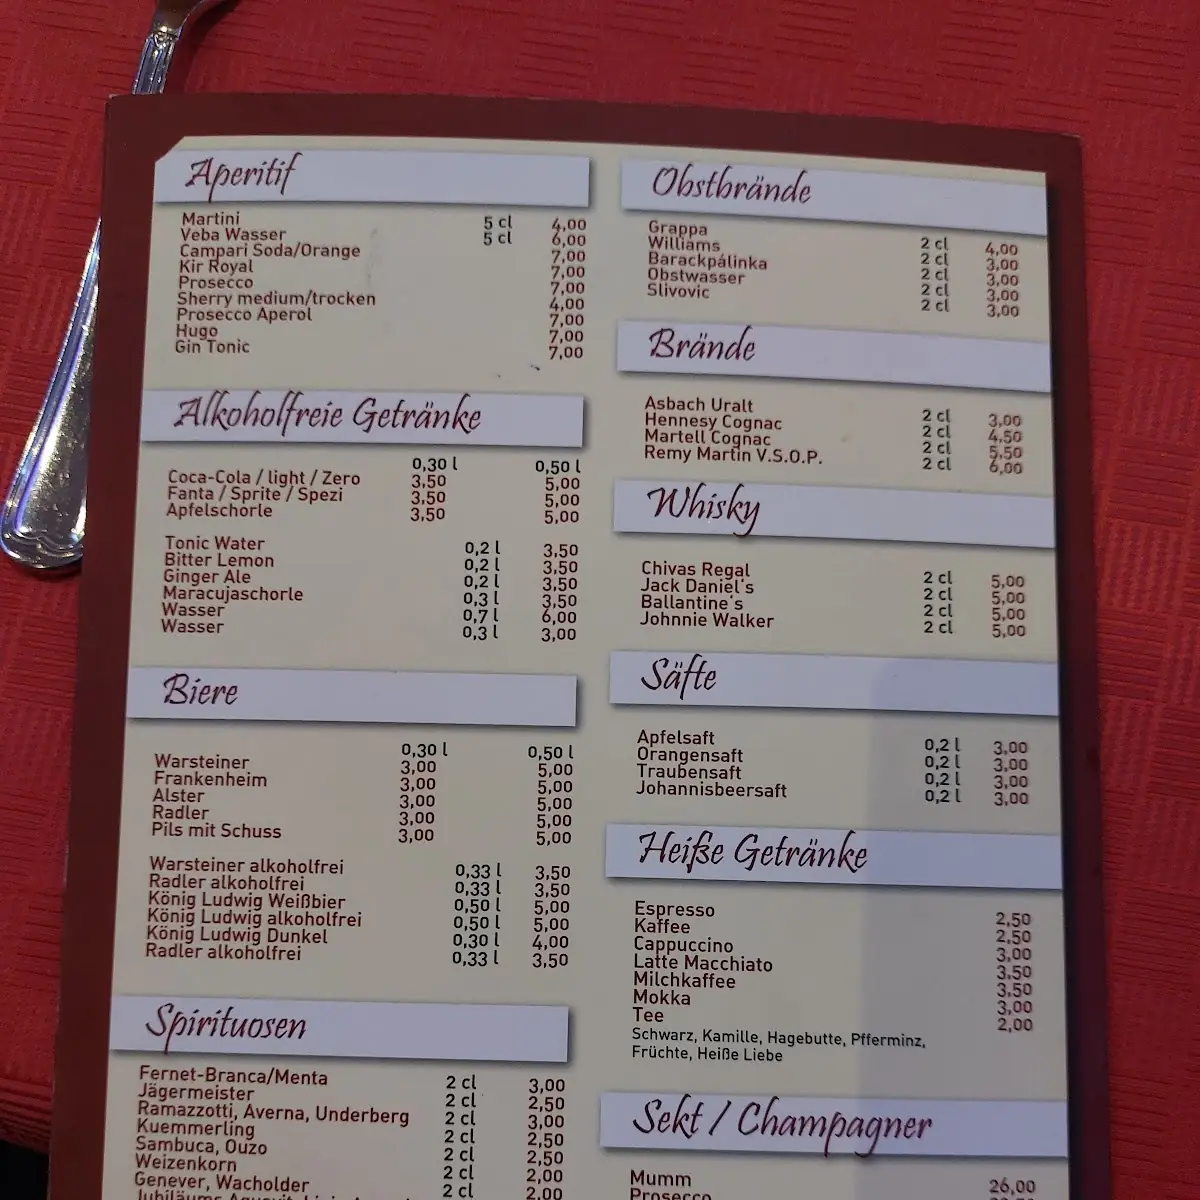 Aperitif
Martini 5 cl 4,00
Veba Wasser 5 cl 6,00
Campari Soda/Orange 7,00
Kir Royal 7,00
Prosecco 7,00
Sherry medium/trocken 4,00
Prosecco Aperol 7,00
Hugo 7,00
Gin Tonic 7,00
Alkoholfreie Getränke
0,30 l 0,50 l
Coca-Cola / light / Zero 3,50 5,00
Fanta / Sprite / Spezi 3,50 5,00
Apfelschorle 3,50 5,00
Tonic Water 0,2 l 3,50
Bitter Lemon 0,2 l 3,50
Ginger Ale 0,2 l 3,50
Maracujaschorle 0,3 l 3,50
Wasser 0,7 l 6,00
Wasser 0,3 l 3,00
Biere
0,30 l 0,50 l
Warsteiner 3,00 5,00
Frankenheim 3,00 5,00
Alster 3,00 5,00
Radler 3,00 5,00
Pils mit Schuss 3,00 5,00
Warsteiner alkoholfrei 0,33 l 3,50
Radler alkoholfrei 0,33 l 3,50
König Ludwig Weißbier 0,50 l 5,00
König Ludwig alkoholfrei 0,50 l 5,00
König Ludwig Dunkel 0,30 l 4,00
Radler alkoholfrei 0,33 l 3,50
Spirituosen
Fernet-Branca/Menta 2 cl 3,00
Jägermeister 2 cl 2,50
Ramazzotti, Averna, Underberg 2 cl 3,00
Kuemmerling 2 cl 2,50
Sambuca, Ouzo 2 cl 2,50
Weizenkorn 2 cl 2,00
Genever, Wacholder 2 cl 2,00
Obstbrände
Grappa 2 cl 4,00
Williams 2 cl 3,00
Barackpálinka 2 cl 3,00
Obstwasser 2 cl 3,00
Slivovic 2 cl 3,00
Brände
Asbach Uralt 2 cl 3,00
Hennesy Cognac 2 cl 4,50
Martell Cognac 2 cl 5,50
Remy Martin V.S.O.P. 2 cl 6,00
Whisky
Chivas Regal 2 cl 5,00
Jack Daniel's 2 cl 5,00
Ballantine's 2 cl 5,00
Johnnie Walker 2 cl 5,00
Säfte
Apfelsaft 0,2 l 3,00
Orangensaft 0,2 l 3,00
Traubensaft 0,2 l 3,00
Johannisbeersaft 0,2 l 3,00
Heiße Getränke
Espresso 2,50
Kaffee 2,50
Cappuccino 3,00
Latte Macchiato 3,50
Milchkaffee 3,50
Mokka 3,00
Tee 2,00
Schwarz, Kamille, Hagebutte, Pfferminz,
Früchte, Heiße Liebe
Sekt / Champagner
Mumm 26,00
Prosecco